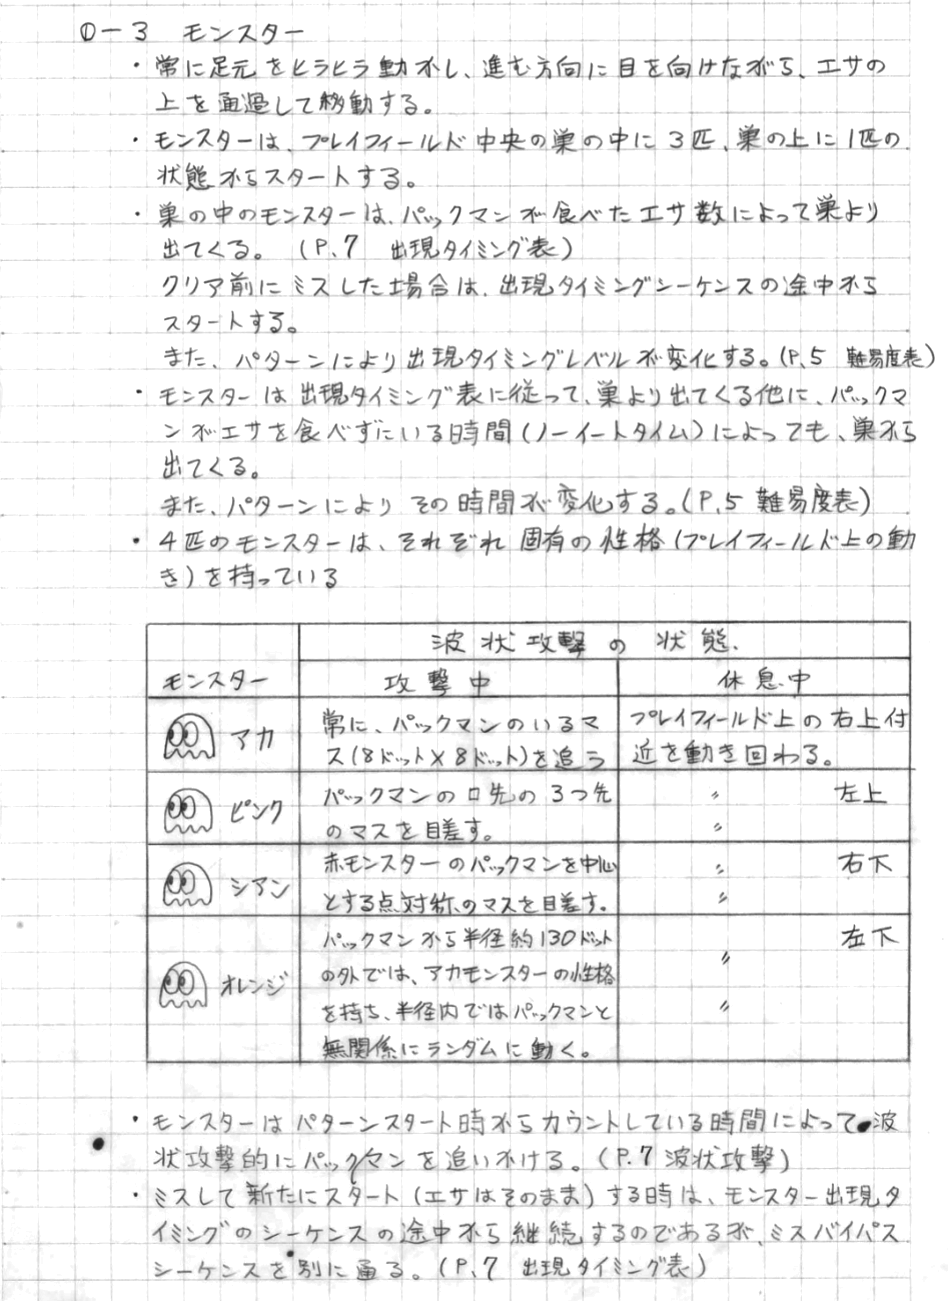 ①-3 モンスター
・常に足元をヒラヒラ動かし、進む方向に目を向けながら、エサの
上を通過して移動する。
・モンスターは、プレイフィールド中央の巣の中に3匹、巣の上に1匹の
状態からスタートする。
・巣の中のモンスターは、パックマンが食べたエサ数によって巣より
出てくる。(P.7 出現タイミング表)
クリア前にミスした場合は、出現タイミングシーケンスの途中から
スタートする。
また、パターンにより出現タイミングレベルが変化する。(P.5 難易度表)
・モンスターは出現タイミング表に従って、巣より出てくる他に、パックマ
ンがエサを食べずにいる時間(ノーイートタイム)によっても、巣から
出てくる。
また、パターンによりその時間が変化する。(P.5 難易度表)
・4匹のモンスターは、それぞれ固有の性格(プレイフィールド上の動
き)を持っている
波状攻撃の状態
モンスター
攻撃中
休息中
アカ
常に、パックマンのいるマ
ス(8ドット×8ドット)を追う
プレイフィールド上の右上付
近を動き回わる。
ピンク
パックマンの口先の3つ先
のマスを目差す。
〃 左上
〃
シアン
赤モンスターのパックマンを中心
とする点対称のマスを目差す。
〃 右下
〃
オレンジ
パックマンから半径約130ドット
の外では、アカモンスターの性格
を持ち、半径内ではパックマンと
無関係にランダムに動く。
〃 左下
〃
・モンスターはパターンスタート時からカウントしている時間によって波
状攻撃的にパックマンを追いかける。(P.7 波状攻撃)
・ミスして新たにスタート(エサはそのまま)する時は、モンスター出現タ
イミングのシーケンスの途中から継続するのであるが、ミスバイパス
シーケンスを別に通る。(P.7 出現タイミング表)